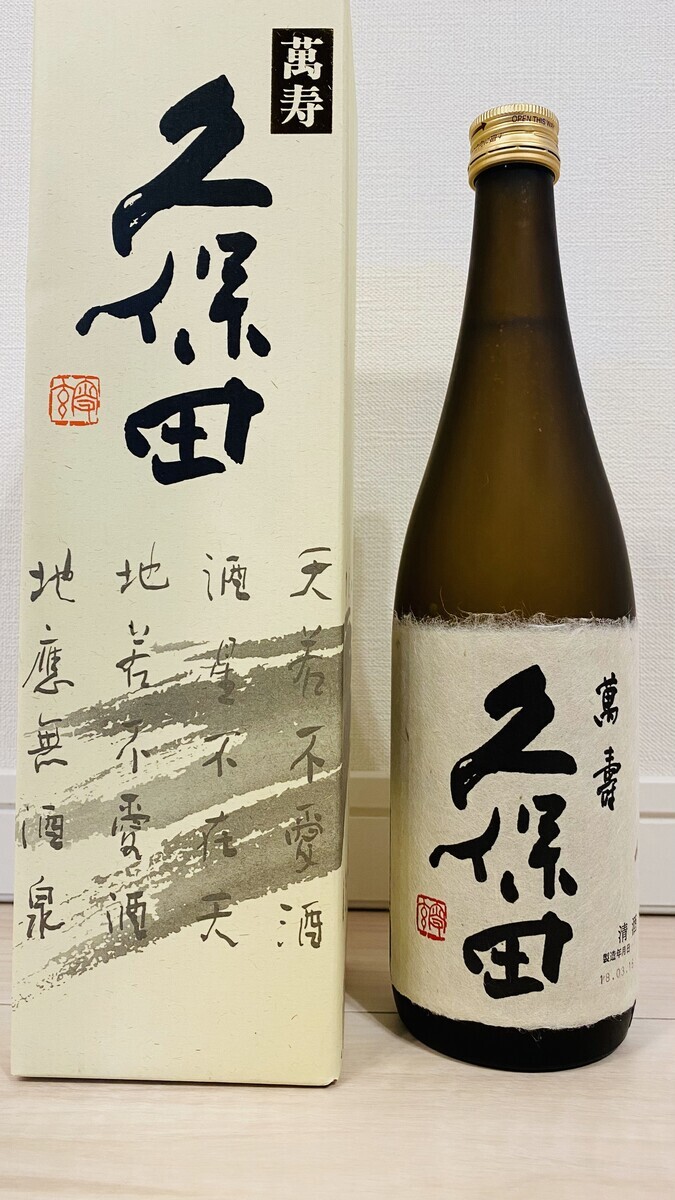 萬寿
久保田
天若不愛酒
酒星不在天
地若不愛酒
地應無酒泉
OPEN THIS WAY
萬壽
久保田
清酒
製造年月日
18.03.1